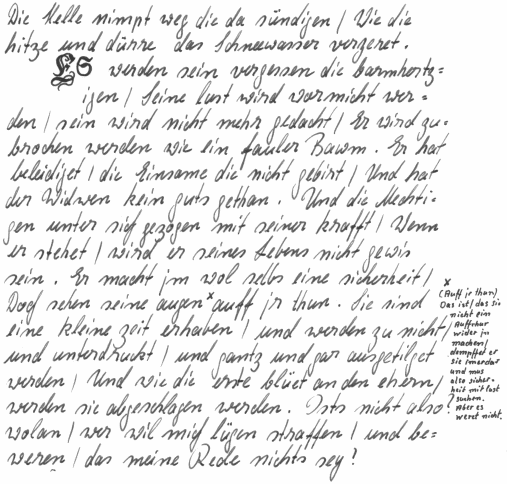 Die Helle nimpt weg die da sündigen / Wie die
hitze und dürre das Schneewasser verzeret.
ES werden sein vergessen die barmhertz=
igen / Seine lust wird wormicht wer=
den / sein wird nicht mehr gedacht / Er wird zu=
brochen werden wie ein fauler Bawm. Er hat
beleidiget / die Einsame die nicht gebirt / Und hat
der Widwen kein guts gethan. Und die Mechti=
gen unter sich gezogen mit seiner krafft / Wenn
er stehet / wird er seines Lebens nicht gewis
sein. Er macht jm wol selbs eine sicherheit /
Doch sehen seine augen x auff jr thun. Sie sind
eine kleine zeit erhaben / und werden zu nicht /
und unterdruckt / und gantz und gar ausgetilget
werden / Und wie die erste blüet an den ehern /
werden sie abgeschlagen werden. Ists nicht also?
wolan / wer wil mich lügen straffen / und be=
weren / das meine Rede nichts sey?
x
(Auff jr thun)
Das ist / das sie
nicht ein
Auffrhur
wider jn
machen /
dempffet er
sie jmerdar
und mus
also sicher-
heit mit lust
suchen.
Aber es
weret nicht.